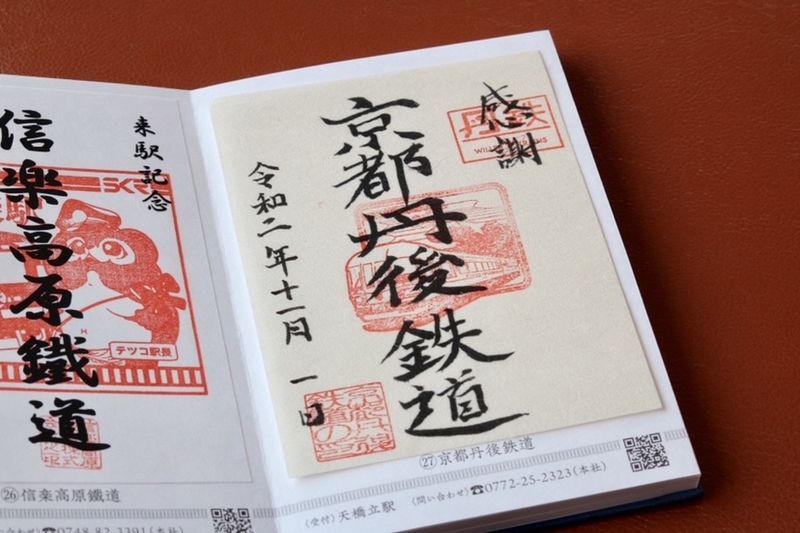 来駅記念
信楽高原鐵道
SKR
テツコ駅長
㉖信楽高原鐵道
☎0748-82-3391(本社)
感謝
丹鉄
京都丹後鉄道
令和二年十一月一日
㉗京都丹後鉄道
(受付)天橋立駅 (問い合わせ)☎0772-25-2323(本社)